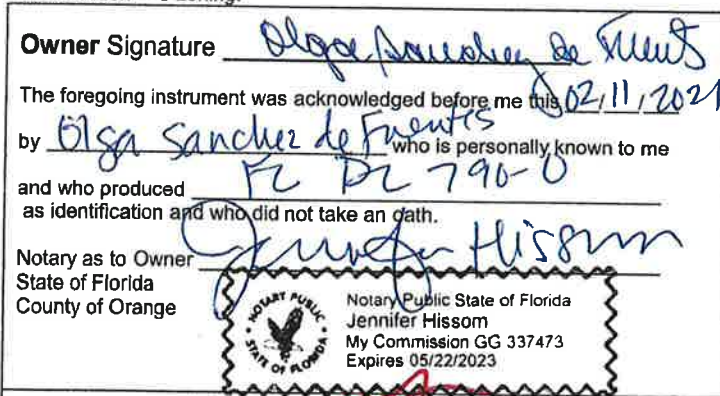 Owner Signature Olga Sanchez de Fuentes
The foregoing instrument was acknowledged before me this 02/11/2021
by Olga Sanchez de Fuentes who is personally known to me
and who produced FL DL 790-0
as identification and who did not take an oath.
Notary as to Owner Jennifer Hissom
State of Florida
County of Orange
NOTARY PUBLIC
STATE OF FLORIDA
Notary Public State of Florida
Jennifer Hissom
My Commission GG 337473
Expires 05/22/2023